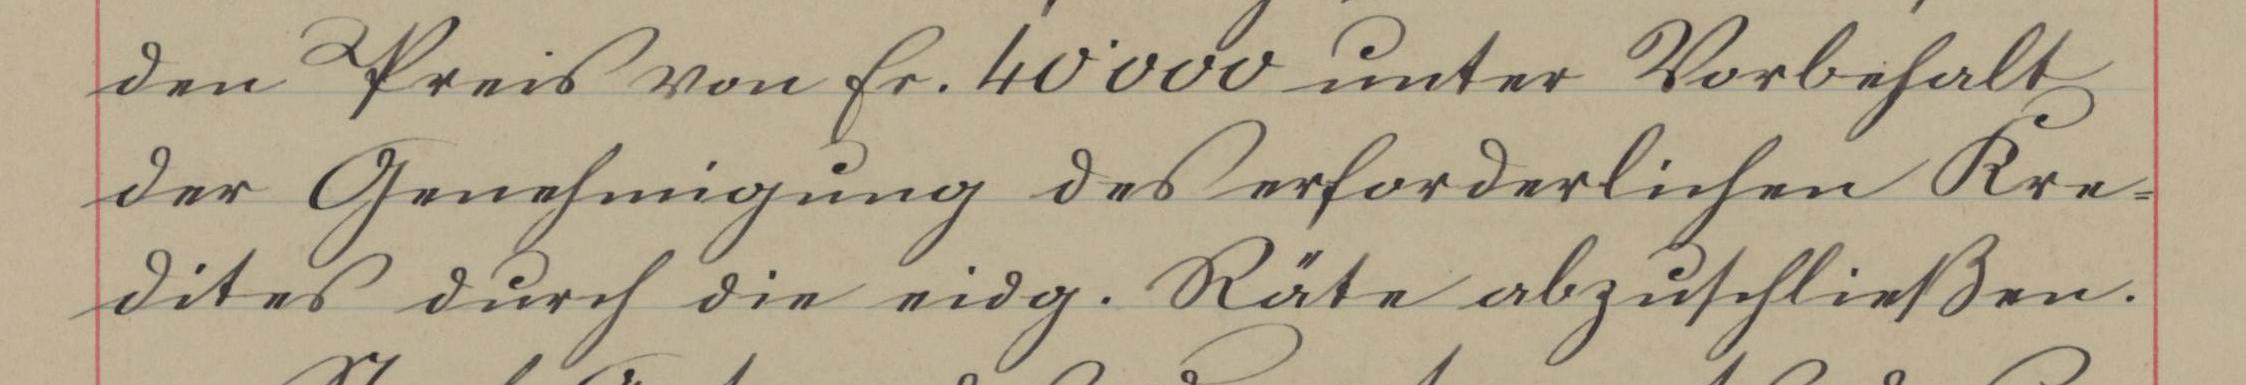 den Preis von Fr. 40'000 unter Vorbehalt
der Genehmigung des erforderlichen Kre=
dites durch die eidg. Räte abzuschließen.